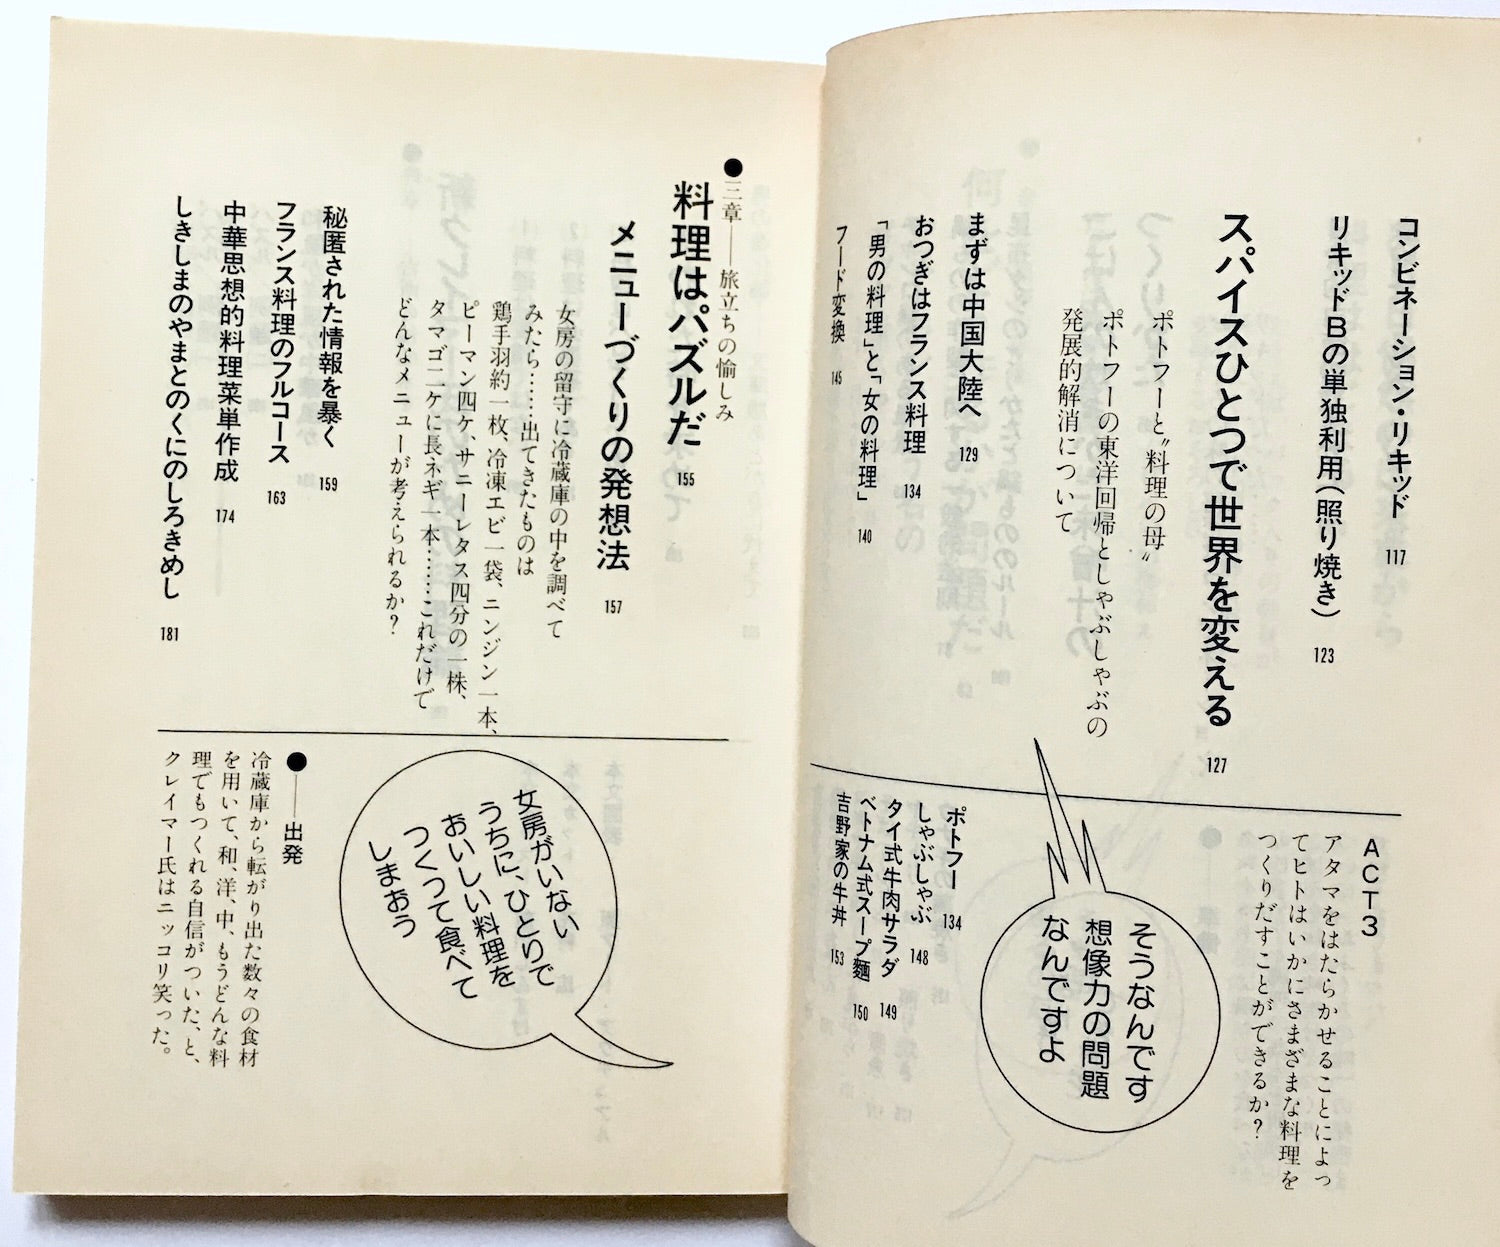 コンビネーション・リキッド 117
リキッドBの単独利用(照り焼き) 123
スパイスひとつで世界を変える 127
ポトフーと〝料理の母〟
ポトフーの東洋回帰としゃぶしゃぶの
発展的解消について
まずは中国大陸へ 129
おつぎはフランス料理 134
「男の料理」と「女の料理」 140
フード変換 145
ACT3
アタマをはたらかせることによっ
てヒトはいかにさまざまな料理を
つくりだすことができるか?
そうなんです
想像力の問題
なんですよ
ポトフー 134
しゃぶしゃぶ 148
タイ式牛肉サラダ 149
ベトナム式スープ麺 150
吉野家の牛丼 153
●三章——旅立ちの愉しみ
料理はパズルだ 155
メニューづくりの発想法 157
女房の留守に冷蔵庫の中を調べて
みたら……出てきたものは
鶏手羽約一枚、冷凍エビ一袋、ニンジン一本、
ピーマン四ケ、サニーレタス四分の一株、
タマゴ二ケに長ネギ一本………これだけで
どんなメニューが考えられるか?
秘匿された情報を暴く 159
フランス料理のフルコース 163
中華思想的料理菜単作成 174
しきしまのやまとのくにのしろきめし 181
女房がいない
うちに、ひとりで
おいしい料理を
つくって食べて
しまおう
●——出発
冷蔵庫から転がり出た数々の食材
を用いて、和、洋、中、もうどんな料
理でもつくれる自信がついた、と、
クレイマー氏はニッコリ笑った。